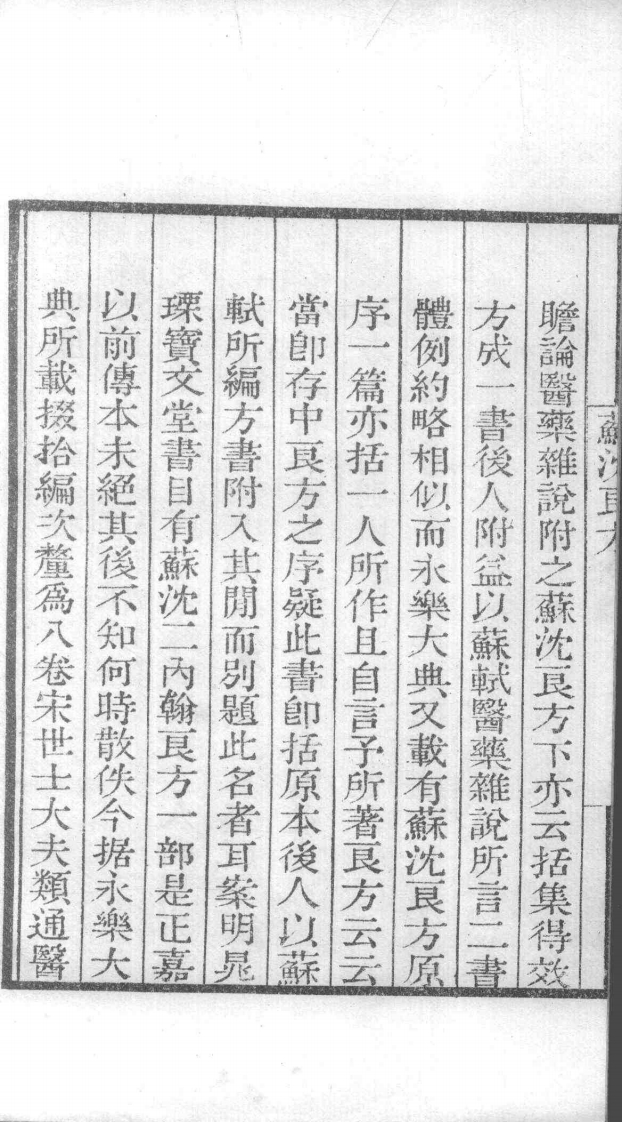 蘇沈良方
瞻論醫藥雜說附之蘇沈良方下亦云括集得效
方成一書後人附益以蘇軾醫藥雜說所言二書
體例約略相似而永樂大典又載有蘇沈良方原
序一篇亦括一人所作且自言予所著良方云云
當卽存中良方之序疑此書卽括原本後人以蘇
軾所編方書附入其閒而别題此名者耳案明晁
瑮寶文堂書目有蘇沈二內翰良方一部是正嘉
以前傳本未絕其後不知何時散佚今据永樂大
典所載掇拾編次釐為八卷宋世士大夫類通醫